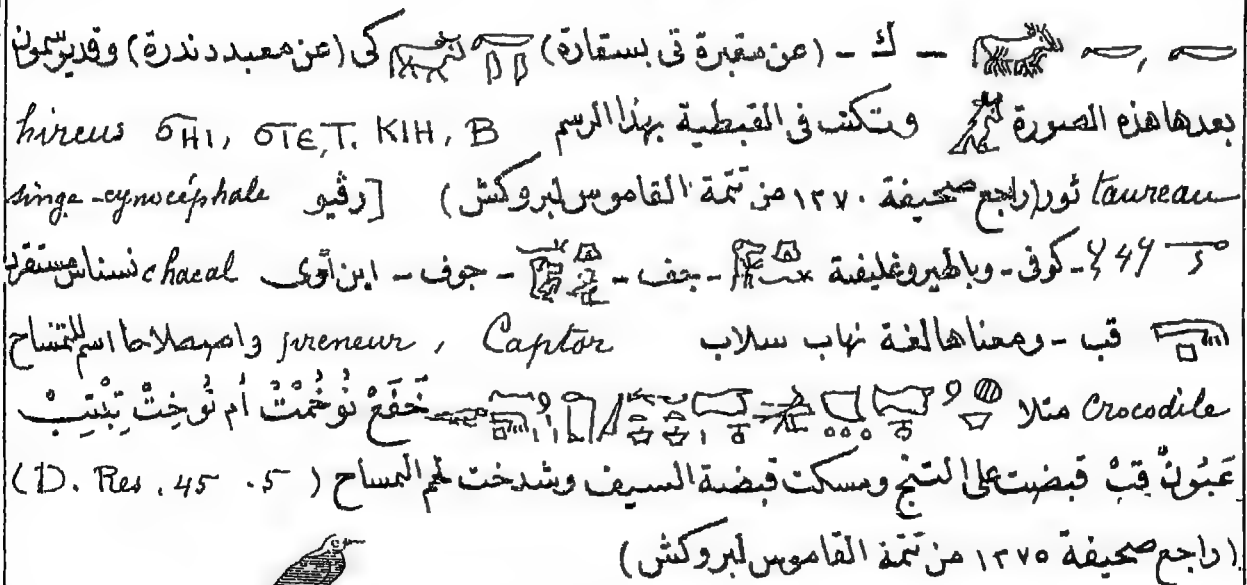 ـ ك ـ (عن مقبرة تى بسقارة) كى (عن معبد دندرة) وقد يرسمون
بعدها هذه الصورة وتكتب فى القبطية بهذا الرسم hircus ϭⲎⲒ, ϭⲒⲈ, T. ⲔⲒⲎ, B
taureau ثور (راجع صحيفة ١٢٧٠ من تتمة القاموس لبروكش) [رڤيو singe-cynocéphale
ـ كوفى ـ وبالهيروغليفية ـ جف ـ ـ جوف ـ ابن آوى chacal نسناس مستقرد
قب ـ ومعناها لغة نهاب سلاب preneur , Captor واصطلاحا اسم للتمساح
Crocodile مثلا خَفَعْ نُوخْمْتْ أم نُوخِتْ تِبْتِبْ
عَبُونْ قِبْ قبضت على ومسكت قبضة السيف وشدخت لحم التمساح (D. Res. 45 . 5)
(راجع صحيفة ١٢٧٥ من تتمة القاموس لبروكش)